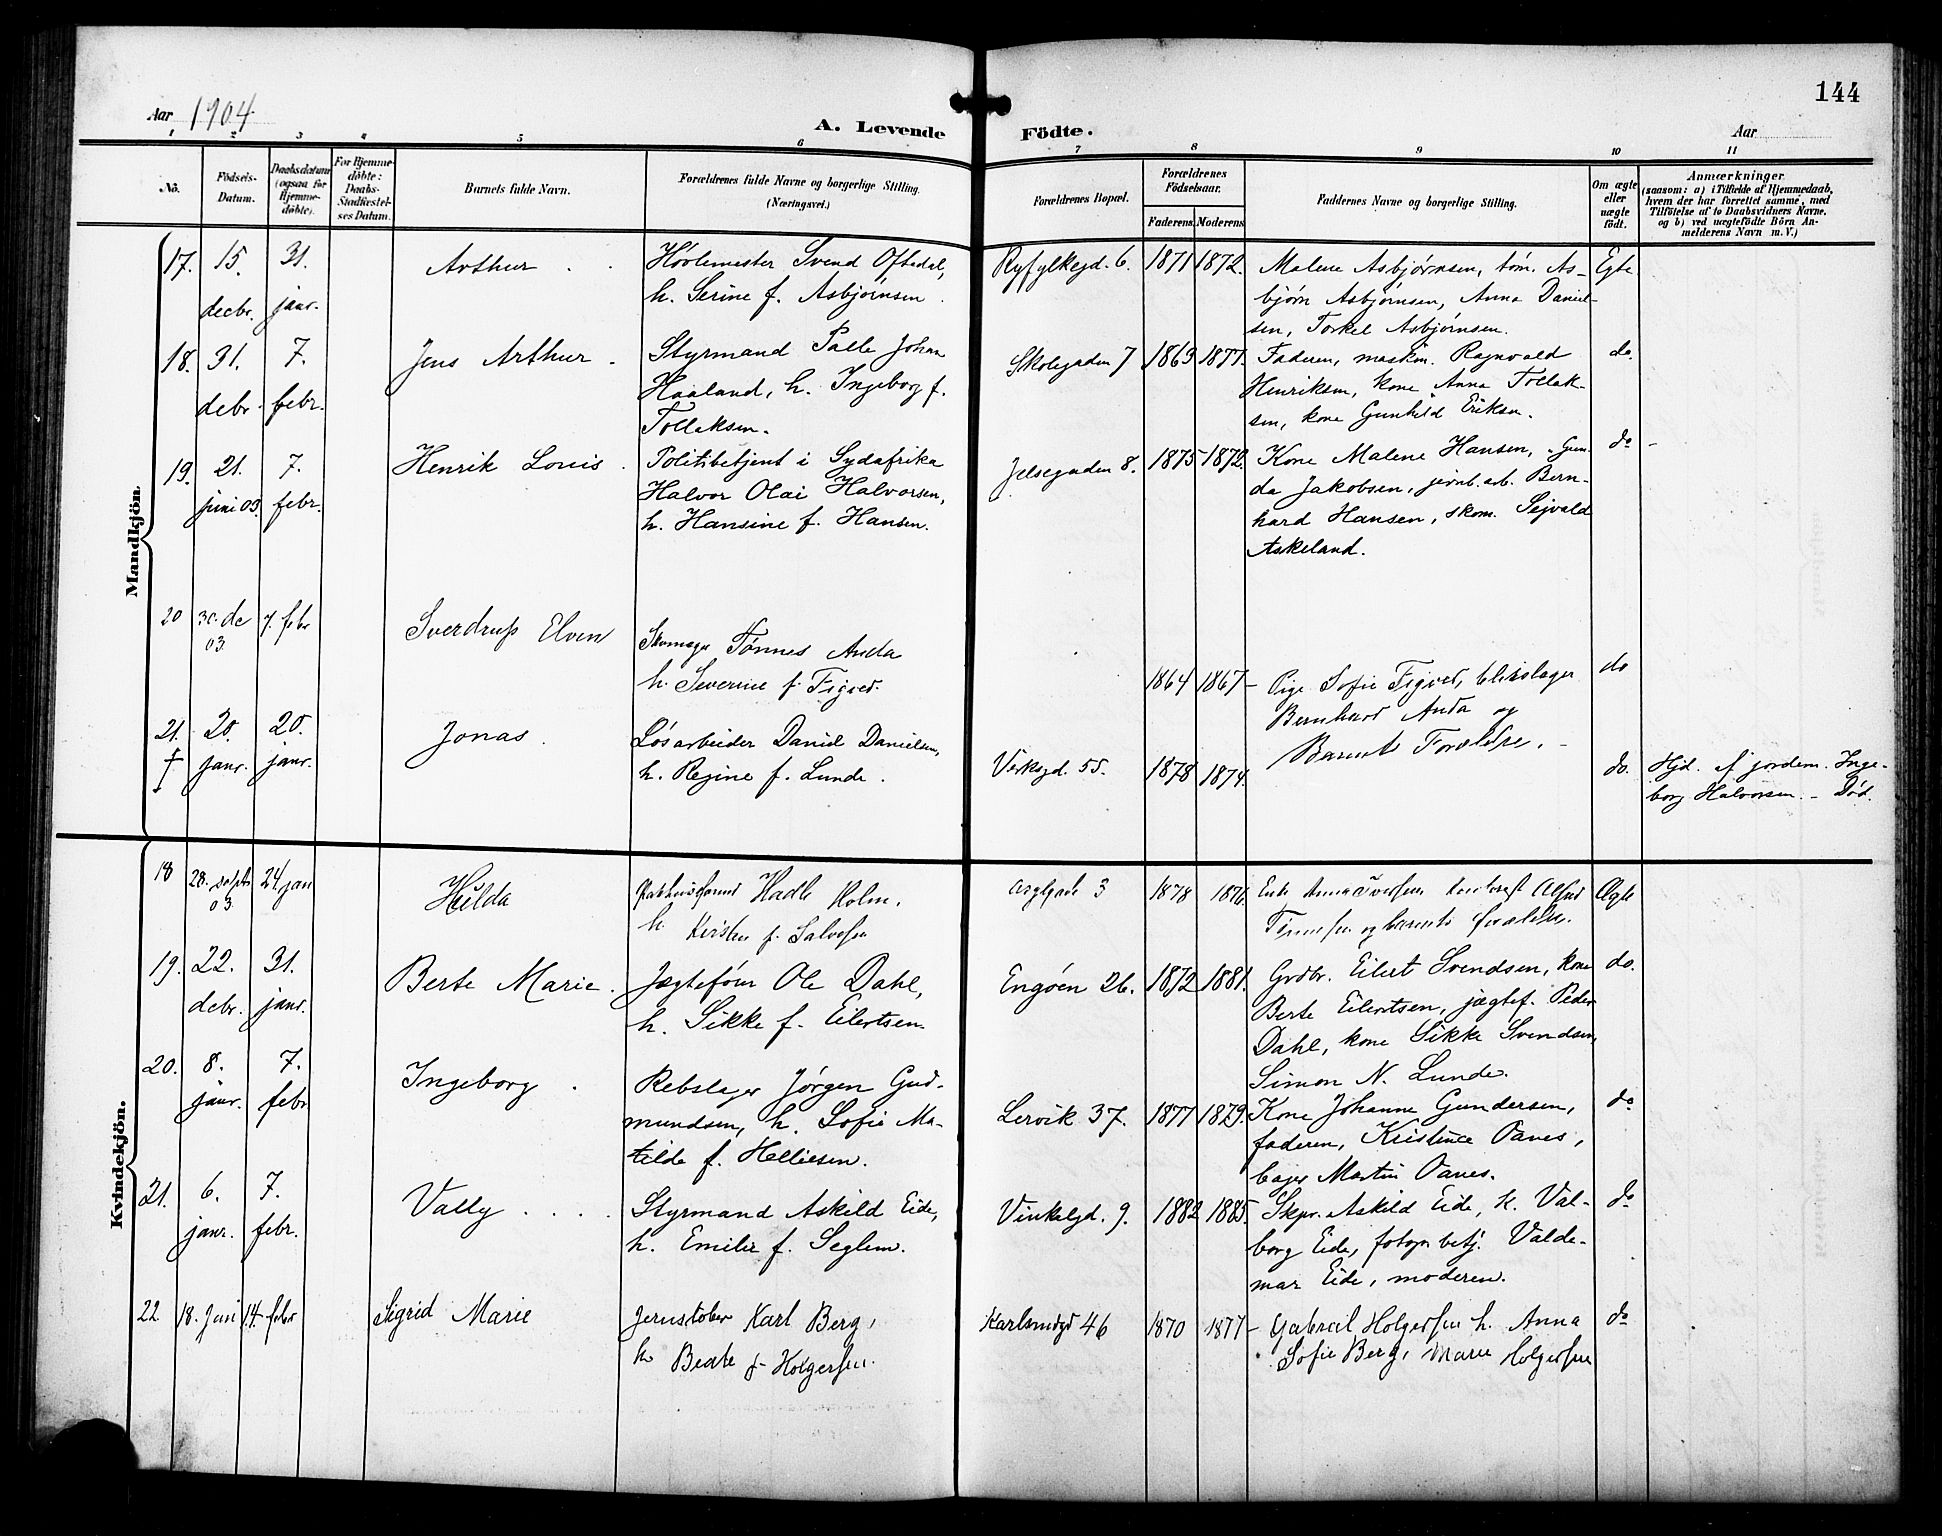 144
Aar 1904
A. Levende Födte.
Aar
1 2 3 4 5 6 7 8 9 10 11
No.
Födsels-
Datum.
Daabsdatum
(ogsaa for
Hjemme-
döbte).
For Hjemme-
döbte:
Daabs-
Stadfæstel-
ses Datum.
Barnets fulde Navn.
Forældrenes fulde Navne og borgerlige Stilling.
(Næringsvei.)
Forældrenes Bopæl.
Forældrenes
Födselsaar.
Faderens Moderens
Faddernes Navne og borgerlige Stilling.
Om ægte
eller
uægte
födt.
Anmærkninger
(saasom: a) i Tilfælde af Hjemmedaab,
hvem der har forrettet samme, med
Tilföielse af to Daabsvidners Navne,
og b) ved uægtefödte Börn An-
melderens Navn m. V.)
Mandkjön.
17. 15. decbr. 31. janr.
Arthur
Hövlemester Svend Oftedal,
h. Serine f. Asbjørnsen.
Ryfylkegd. 6. 1871 1872.
Malene Asbjørnsen, töm. As-
bjørn Asbjørnsen, Anna Daniel-
sen, Torkel Asbjørnsen.
Egte.
18. 31. debr. 7. febr.
Jens Arthur.
Styrmand Palle Johan
Haaland, h. Ingeborg f.
Tollaksen.
Skolegaden 7 1863 1877.
Faderen, maskin. Ragnvald
Henriksen, kone Anna Tollak-
sen, kone Gunhild Eriksen.
do.
19. 21. juni 03. 7. febr.
Henrik Louis.
Politibetjent i Sydafrika
Halvor Olai Halvorsen,
h. Hansine f. Hansen.
Jelsegaden 8. 1875 1872.
Kone Malene Hansen, Gun-
da Jakobsen, jernb.arb. Bern-
hard Hansen, skom. Sejvald
Askeland.
do
20 30. de 03. 7. febr
Sverdrup Elven
Skomager Tønnes Anda
h. Severine f. Figved.
1864 1867
Pige Sofie Figved, blikslager
Bernhard Anda og
Barnets Forældre.
do
21. † 20. janr. 20. janr.
Jonas.
Løsarbeider Daniel Danielsen,
h. Regine f. Lunde.
Verksgd. 55. 1878 1874.
do.
Hjd. af jordem. Inge-
borg Halvorsen. - Død.
Kvindekjön.
18 28. septr 03. 24. jan
Hilda
Hadle Holm.
h. Kirsten f. Salvesen
3 1878 1876.
Enke Anna Iversen Alfred
og barnets forældre.
Ægte
19. 22. debr. 31. janr.
Berte Marie.
Jægtefører Ole Dahl,
h. Sikke f. Eilertsen.
Engøen 26. 1872 1881.
Grdbr. Eilert Svendsen, kone
Berte Eilertsen, jægtef. Peder
Dahl, kone Sikke Svendsen,
Simon N. Lunde.
do.
20. 8. janr. 7. febr
Ingeborg.
Rebslager Jørgen Gud-
mundsen, h. Sofie Ma-
tilde f. Helliesen.
Lervik 37. 1877 1879.
Kone Johanne Gundersen,
faderen, Kristine Oanes,
bager Martin Oanes.
do
21. 6. janr. 7. febr.
Vally
Styrmand Askild Eide,
h. Emilie f. Seglem.
Vinkelgd. 9. 1882 1885.
Skpr. Askild Eide, k. Val-
borg Eide, fotogr.betj. Valde-
mar Eide, moderen.
do
22 18. Juni 14. febr
Sigrid Marie
Jernstøber Karl Berg,
h. Beate f. Holgersen.
Karlsmdgd 46 1870 1877
Gabriel Holgersen h. Anna
Sofie Berg, Marie Holgersen
do